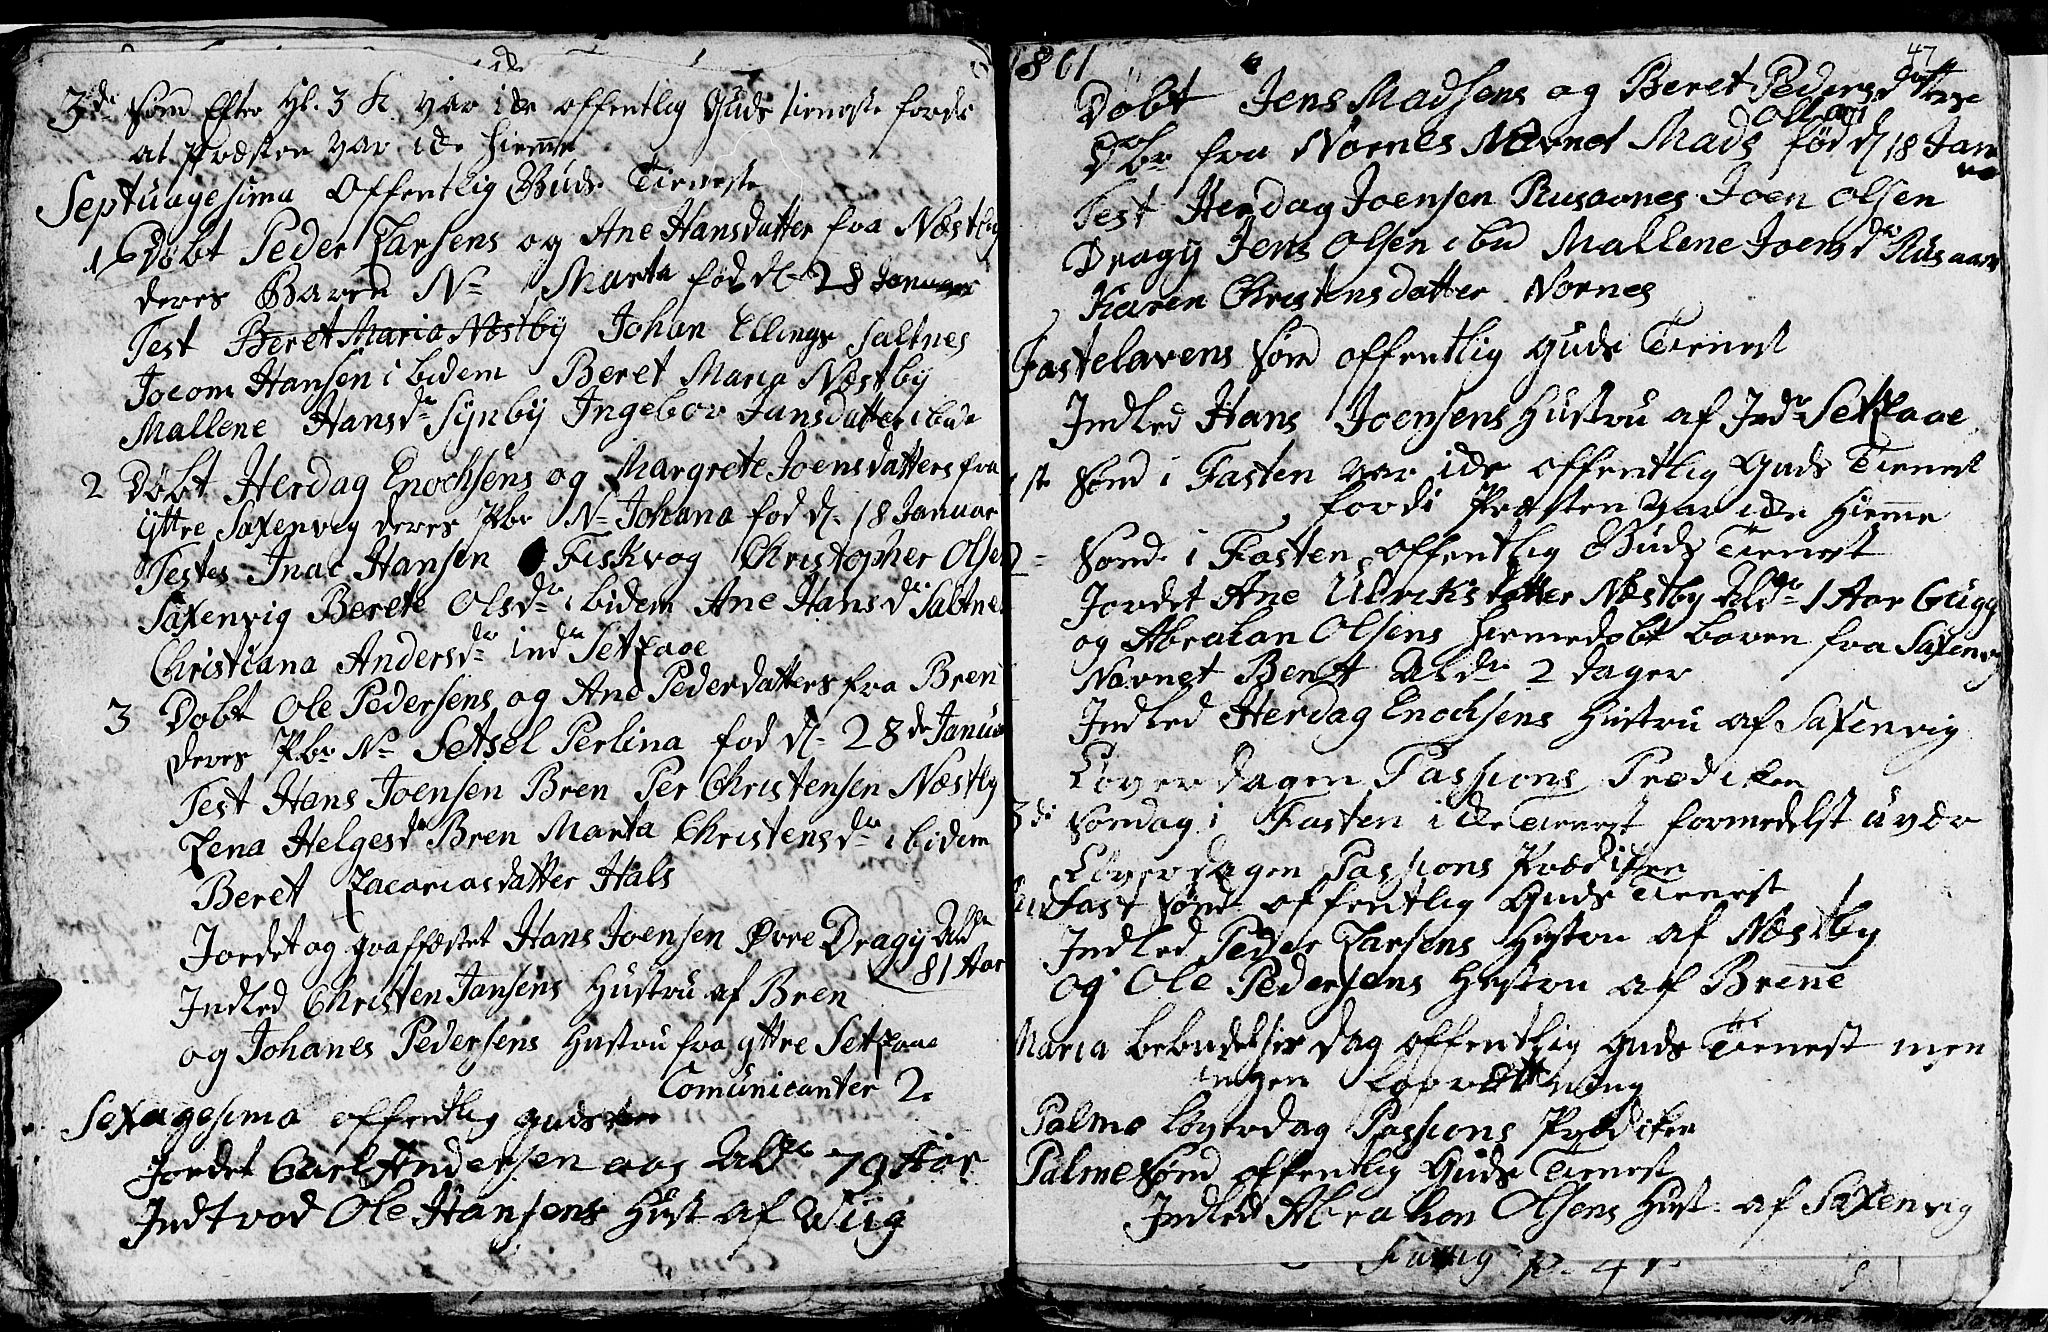 3de Sönd Efter Hl. 3 K. var ide offentlig Guds tieneste fordi
at Præsten var ide Hiemme
Septuagesima Offentlig Guds Tieneste
1 Döbt Peder Larsens og Ane Hansdatter fra Næstby
deres Baren N Marta föd d. 28 Januar
Test Beret Maria Næstby Johan Ellings Saltnes
Jocom Hansen ibidem Beret Maria Næstby
Mallene Hansd Synbÿ Ingebor Jansdatter ibid
2 Döbt Herdag Enochsens og Margrete Joensdatters fra
yttre Saxenvig deres Pbr N Johana fod d. 18 Januar
Testes Inac Hansen Fiskvog Christopher Olsen
Saxenvig Berete Olsd ibidem Ane Hansd Saltnes
Christiana Andersd ind Setzaae
3 Dobt Ole Pedersens og Ane Pederdatters fra Bren
deres Pbr N Setsel Perlina fod d. 28de Janua
Test Hans Joensen Bren Per Christensen Næstby
Lena Helgesd Bren Marta Christensd ibidem
Beret Zacariasdatter Hals
Jordet og graffæstet Hans Joensen Øvre Dragÿ Ald
81 Aar
Indled Christen Jansens Hustru af Bren
og Johanes Pedersens Hustru fra yttre Setzaae
Comunicanter 2.
Sexagesima offentlig guds
Jordet Carl Andersen aas Ald 79 Aar
Indtrod Ole Hansens Hust af Wiig
1801
47
Döbt Jens Madsens og Beret Pedersdatters
Dbr fra Nornes Nævnet Mads föd d 18 Janu
Test Herdag Joensen Rusaanes Joen Olsen
Dragÿ Jens Olsen ibid Mallene Joensd Rusaan
Karen Christensdatter Nornes
Fastelavens Sönd offentlig guds Tienest
Indled Hans Joensens Hustru af Ind Setzaae
1ste Sönd i Fasten var ide offentlig Guds Tienest
fordi Præsten var ide Hiemme
2 Sönd i Fasten offentlig Guds Tienest
Jordet Ane Ulrichsdatter Næstby Ald 1 Aar 6 ugg
og Abrahan Olsens Hiemedobt baren fra Saxenvig
Navnet Bent Ald 2 dager
Indled Herdag Enochsens Hustru af Saxenvig
Löverdagen Passions Prediken
3de Söndag i Fasten ide Tienest formedelst uvær
Löverdagen Passions Prædiken
Mitfast Sönd offentlig Guds Tienest
Indled Peder Larsens Hustru af Næstby
og Ole Pedersens Hustru af Brene
Maria Bebudelses dag offentlig Guds Tienest men
ingen
Palme Loverdag Passions Prædiken
Palme Sönd offentlig Guds Tienest
Indled Abrahan Olsens Hust: af Saxenvig